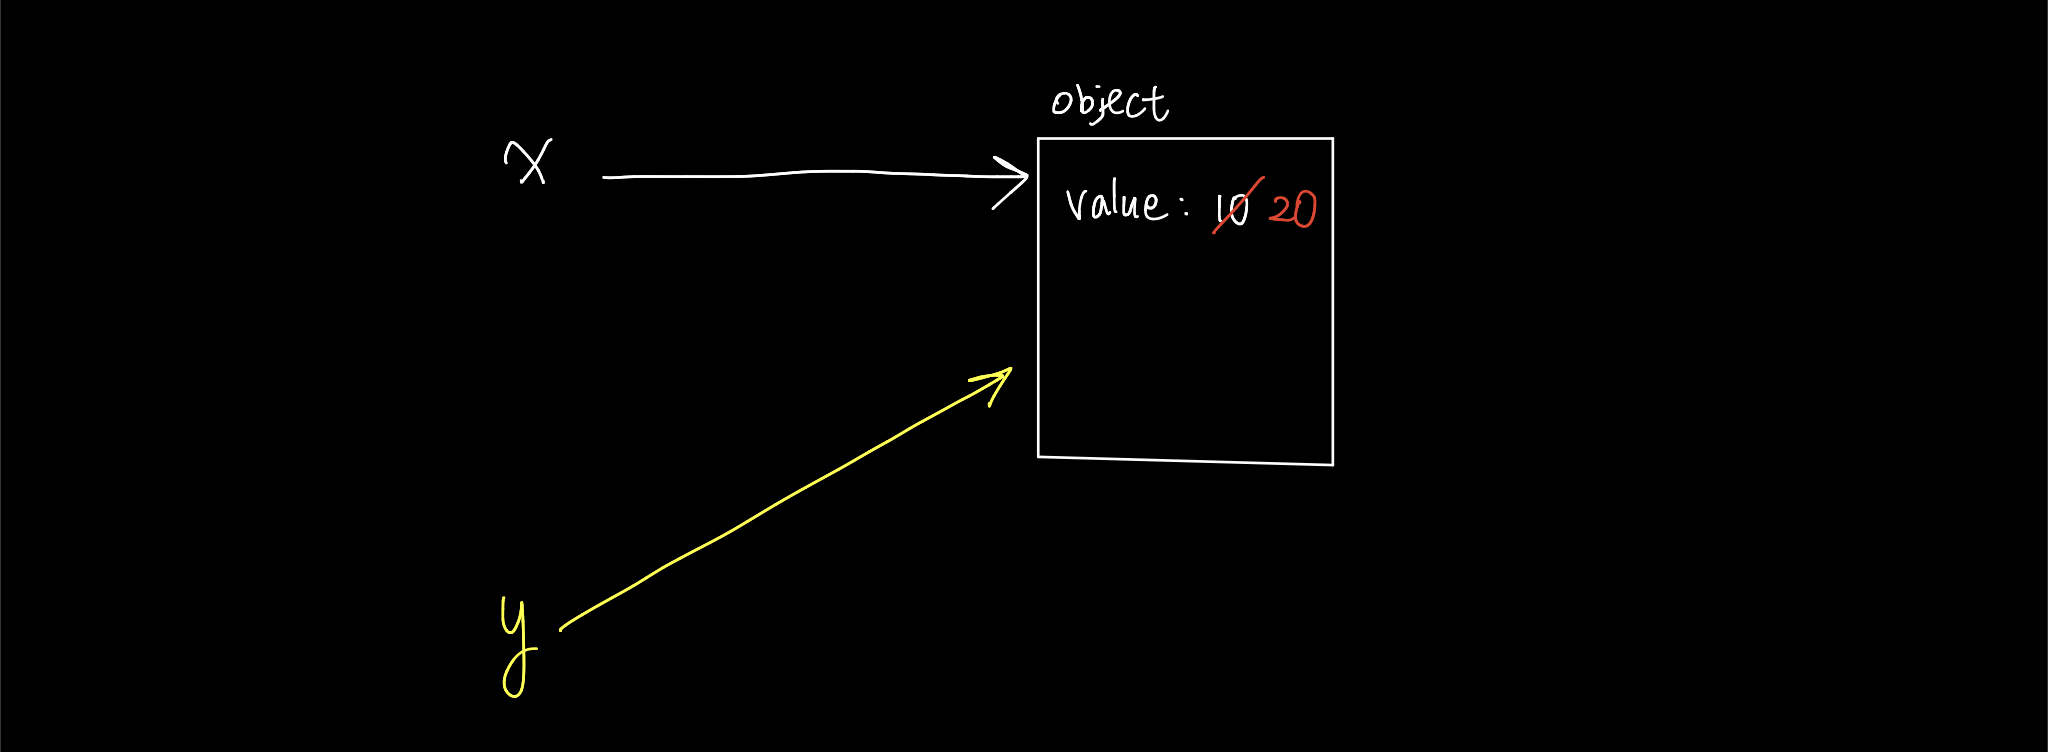 object
x
value: 10 20
y